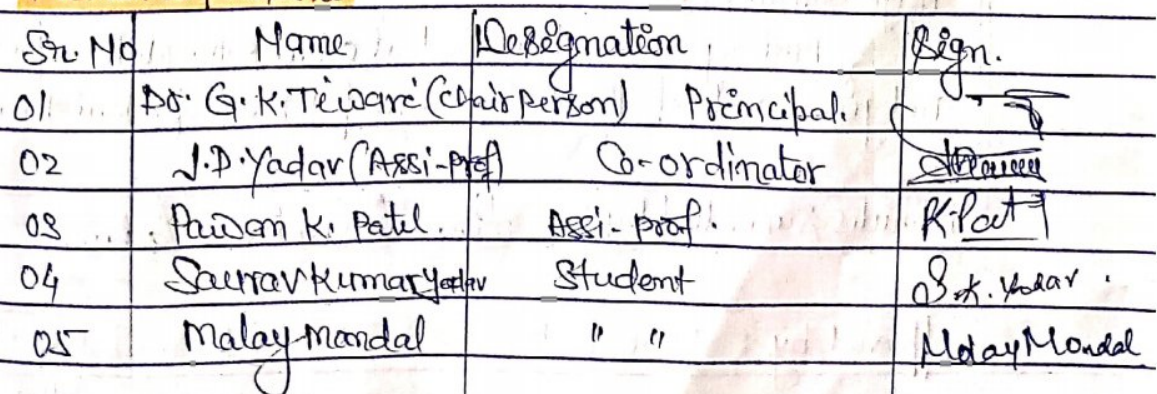 Sr. No Name Designation Sign.
01 Dr. G.K. Tiwari (Chairperson) Principal.
02 J.D. Yadav (Assi-prof) Co-ordinator
03 Pawan K. Patil. Assi- prof. K.Patil
04 Saurav Kumar Yadav Student S.K. Yadav
05 Malay Mondal " " Malay Mondal